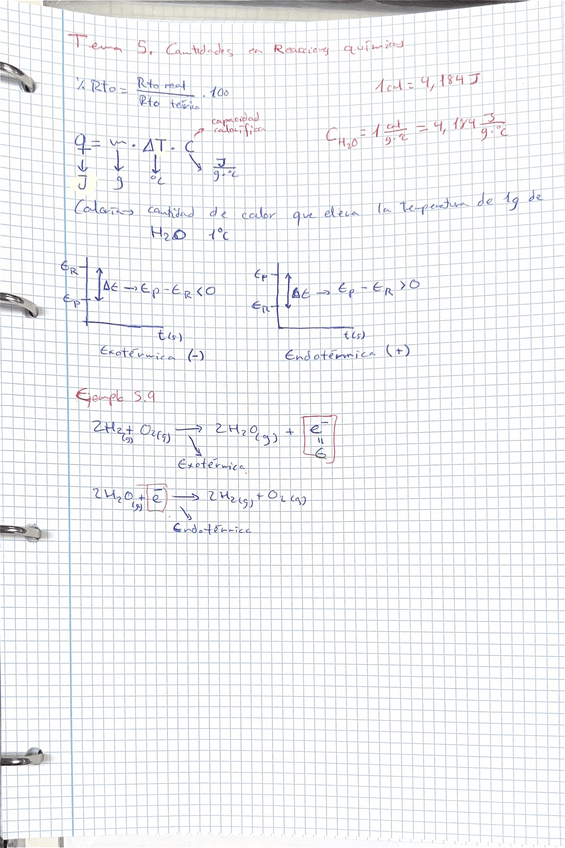 Tema 5. Cantidades en Reacciones químicas
% Rto = Rto real / Rto teórico · 100
1 cal = 4,184 J
capacidad calorífica
C H2O = 1 cal/g·ºC = 4,184 J/g·ºC
q = m · ΔT · C
J g ºC J/g·ºC
Caloría → cantidad de calor que eleva la temperatura de 1g de
H2O 1ºC
ER
Ep
Δε → εp - εR < 0
t(s)
Exotérmica (-)
εp
εR
Δε → εp - εR > 0
t(s)
Endotérmica (+)
Ejemplo 5.9
2H2(g) + O2(g) → 2H2O(g) + e-
=
E
Exotérmica
2H2O(g) + e- → 2H2(g) + O2(g)
Endotérmica